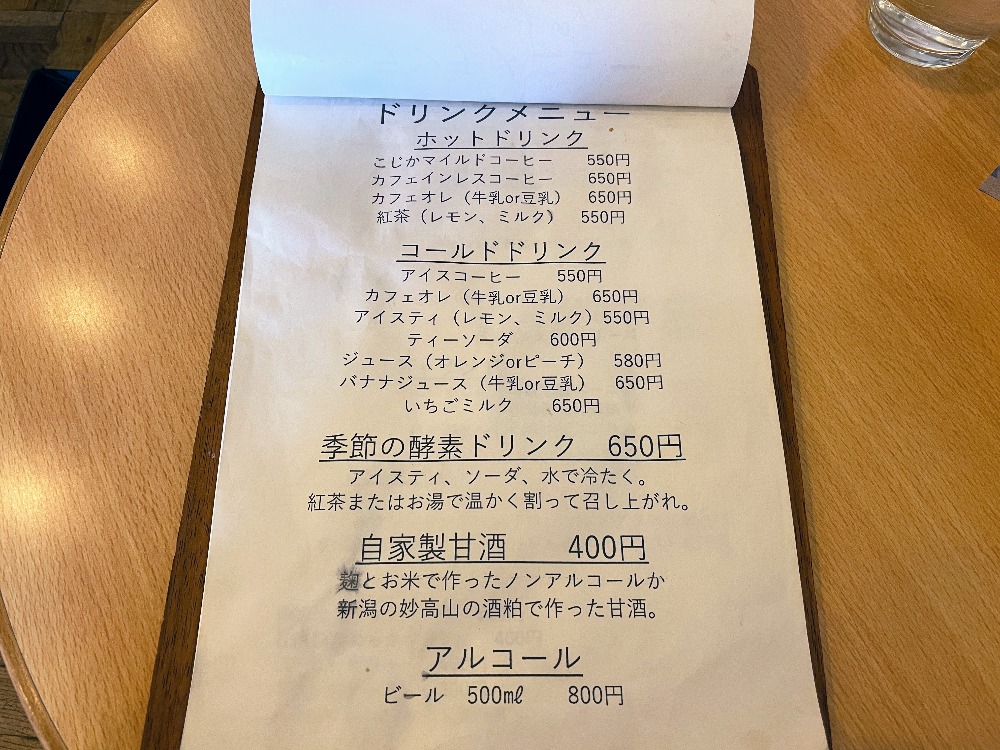 ドリンクメニュー
ホットドリンク
こじかマイルドコーヒー 550円
カフェインレスコーヒー 650円
カフェオレ（牛乳or豆乳） 650円
紅茶（レモン、ミルク） 550円
コールドドリンク
アイスコーヒー 550円
カフェオレ（牛乳or豆乳） 650円
アイスティ（レモン、ミルク）550円
ティーソーダ 600円
ジュース（オレンジorピーチ） 580円
バナナジュース（牛乳or豆乳） 650円
いちごミルク 650円
季節の酵素ドリンク 650円
アイスティ、ソーダ、水で冷たく。
紅茶またはお湯で温かく割って召し上がれ。
自家製甘酒 400円
麹とお米で作ったノンアルコールか
新潟の妙高山の酒粕で作った甘酒。
アルコール
ビール 500㎖ 800円